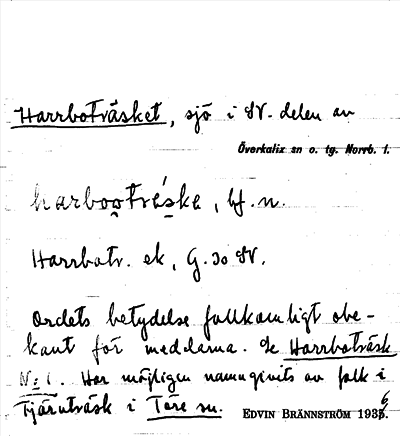 Harrboträsket, sjö i SV. delen av
Överkalix sn o. tg. Norrb. l.
harbooträske, bf. n.
Harrbotr. ek, G. 30 SV.
Ordets betydelse fullkomligt obe-
kant för meddelarna. Se Harrboträsk
N:o 1. Har möjligen namngivits av folk i
Tjärnträsk i Töre sn.
EDVIN BRÄNNSTRÖM 1936.